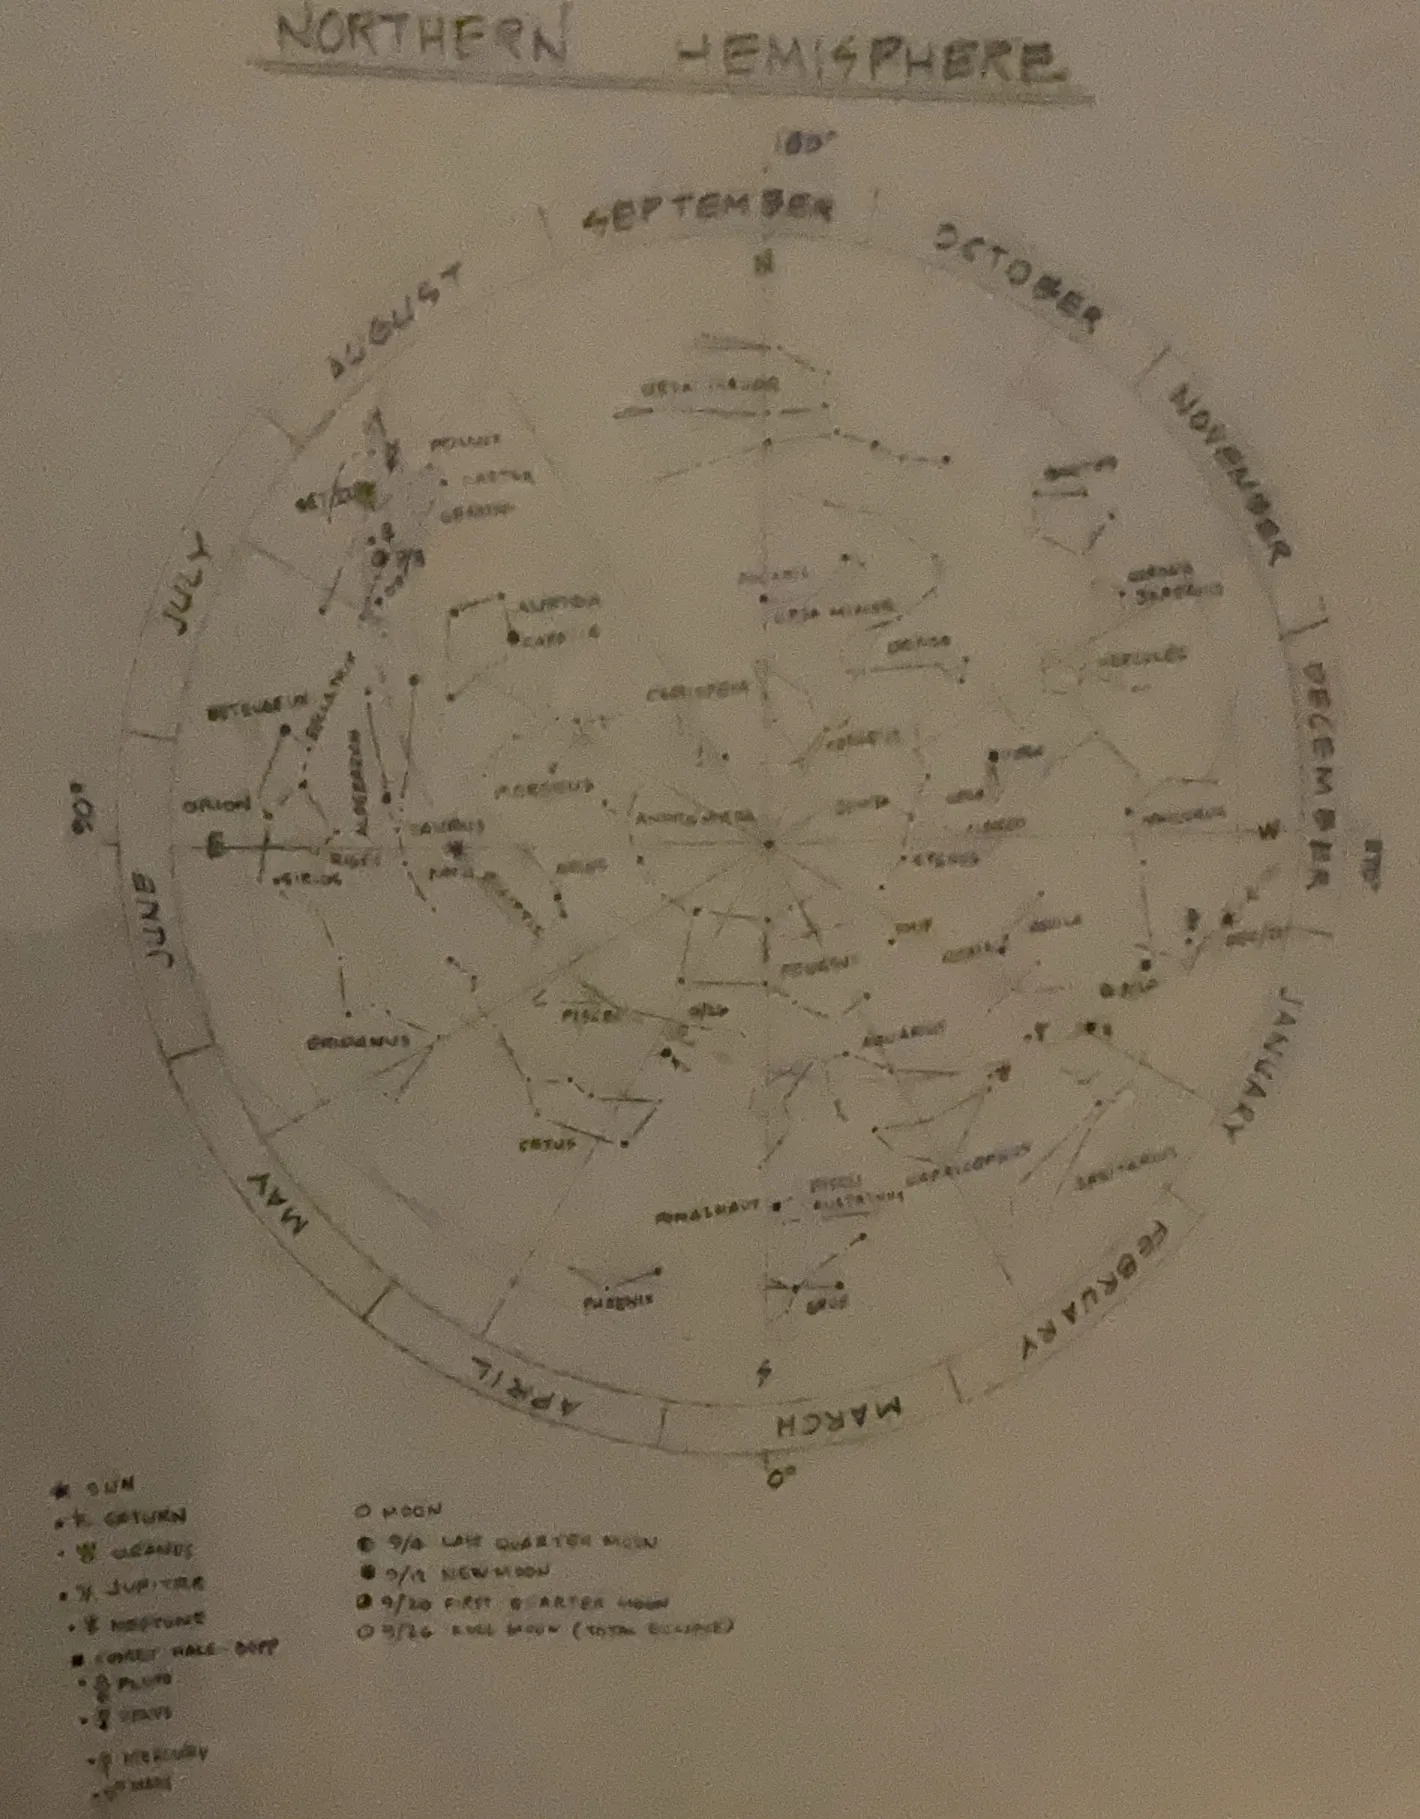 NORTHERN HEMISPHERE
180°
SEPTEMBER
OCTOBER
N
AUGUST
NOVEMBER
URSA MAJOR
POLLUX
CASTOR
GEMINI
JULY
POLARIS
URSA MINOR
CORONA
BOREALIS
CAPELLA
DRACO
HERCULES
DECEMBER
BELLATRIX
BETELGEUX
CEPHEUS
VEGA
LYRA
PERSEUS
ALDEBARAN
ORION
ANDROMEDA
TAURUS
CYGNUS
90°
E
W
270°
RIGEL
SIRIUS
ARIES
JUNE
AQUILA
PEGASUS
PISCES
9/26
JANUARY
AQUARIUS
ERIDANUS
CETUS
CAPRICORNUS
SAGITARIUS
PISCIS
AUSTRINUS
FOMALHAUT
MAY
PHOENIX
GRUS
FEBRUARY
S
APRIL
MARCH
0°
SUN
SATURN
URANUS
JUPITER
NEPTUNE
COMET HALE-BOPP
PLUTO
VENUS
MERCURY
MARS
MOON
9/4 LAST QUARTER MOON
9/12 NEW MOON
9/20 FIRST QUARTER MOON
9/26 FULL MOON (TOTAL ECLIPSE)